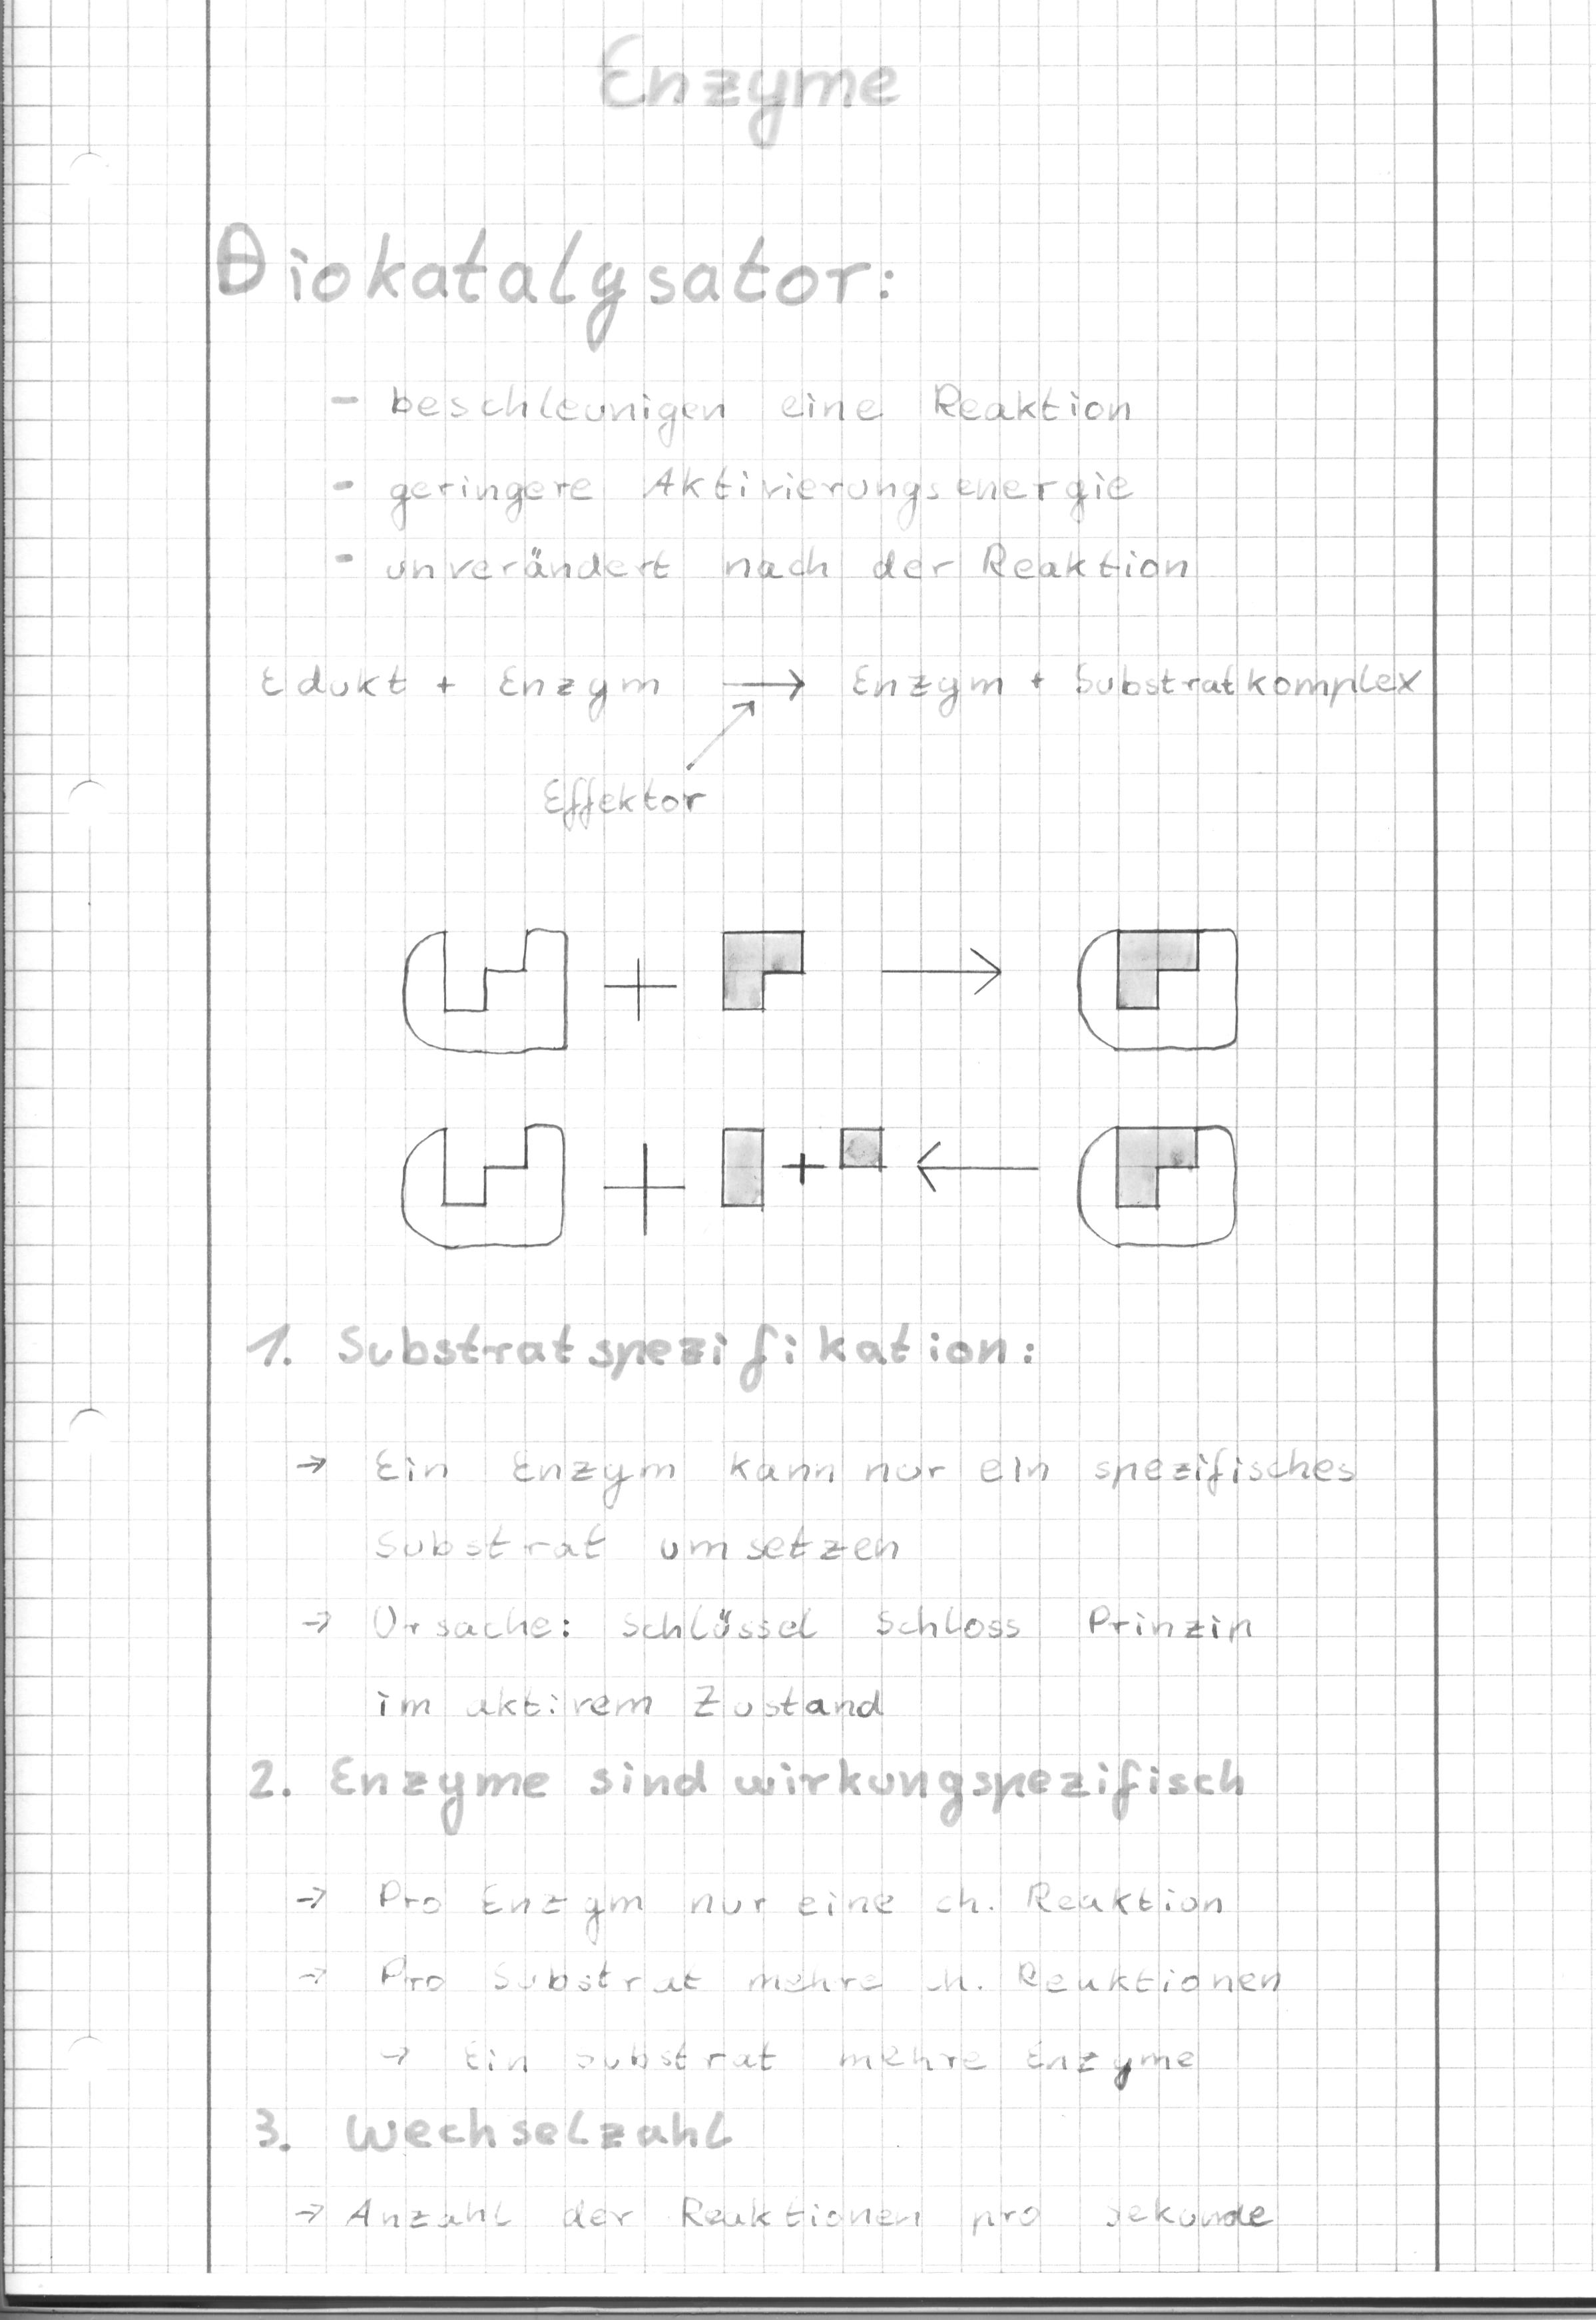 Enzyme
Biokatalysator:
- beschleunigen eine Reaktion
- geringere Aktivierungsenergie
- unverändert nach der Reaktion
Edukt + Enzym → Enzym + Substratkomplex
Effektor
+ →
+ + ←
1. Substratspezifikation:
→ Ein Enzym kann nur ein spezifisches
Substrat umsetzen
→ Ursache: Schlüssel Schloss Prinzip
im aktivem Zustand
2. Enzyme sind wirkungspezifisch
→ Pro Enzym nur eine ch. Reaktion
→ Pro Substrat mehre ch. Reaktionen
→ Ein Substrat mehre Enzyme
3. Wechselzahl
→ Anzahl der Reaktionen pro Sekunde